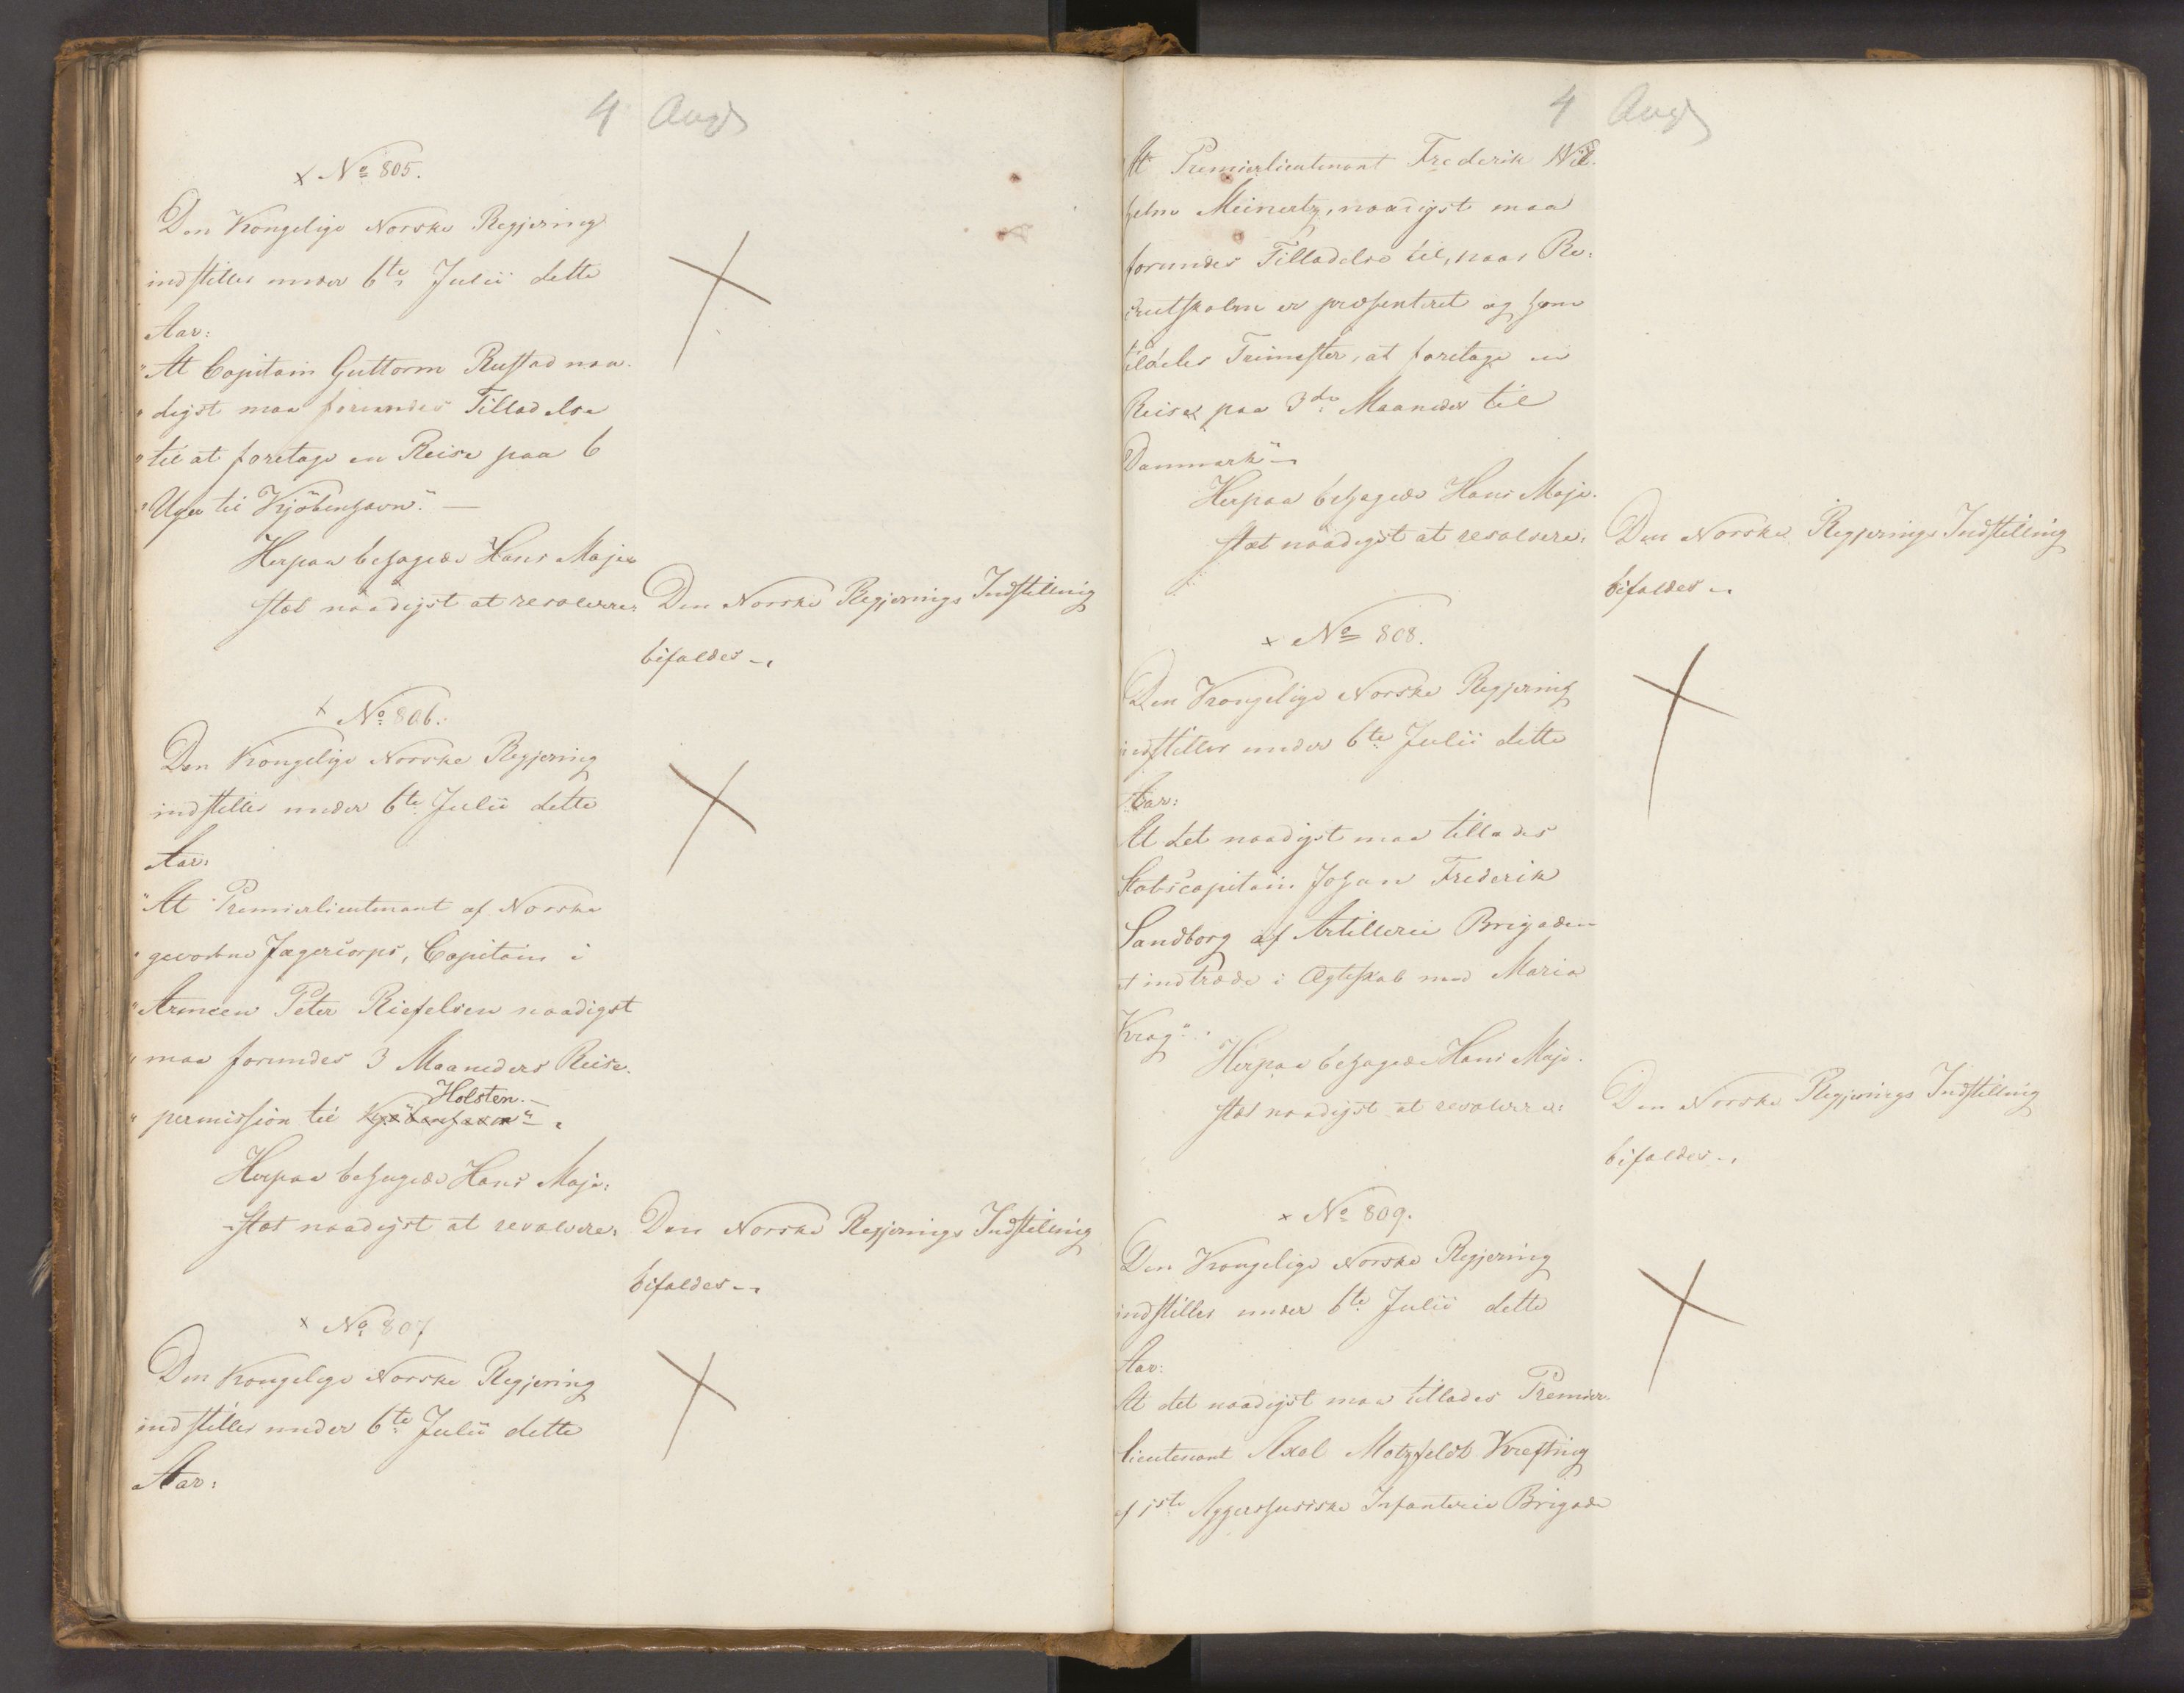 4 Augs
× No 805.
Den Kongelige Norske Regjering
indstiller under 6te Julii dette
Aar:
"At Capitain Guttorm Rustad naa-
"digst maa forundes Tilladelse
"til at foretage en Reise paa 6
"Uger til Kjöbenhavn". —
Herpaa behagede Hans Maje-
stæt naadigst at resolvere: Den Norske Regjerings Indstilling
bifaldes –
× No 806.
Den Kongelige Norske Regjering
indstiller under 6te Julii dette
Aar:
"At Premierlieutenant af Norske
"gevorbne Jægercorps, Capitain i
"Armeen Peter Riefelsen naadigst
"maa forundes 3 Maaneders Reise-
Holsten. –
"permission til Kjöbenhavn" –
Herpaa behagede Hans Maje-
stæt naadigst at resolvere: Den Norske Regjerings Indstilling
bifaldes –
× No 807
Den Kongelige Norske Regjering
indstiller under 6te Julii dette
Aar:
4 Augs
At Premierlieutenant Frederik Wil-
helm Meinertz, naadigst maa
forundes Tilladelse til, naar Re-
crutskolen er præsenteret og hjem
tildeles Trimester, at foretage en
Reise paa 3de Maaneder til
Danmark" –
Herpaa behagede Hans Maje-
stæt naadigst at resolvere: Den Norske Regjerings Indstilling
bifaldes –
× No 808.
Den Kongelige Norske Regjering
indstiller under 6te Julii dette
Aar:
At det naadigst maa tillades
Stabscapitain Johan Frederik
Sandborg af Artillerie Brigaden
at indtræde i Ægteskab med Maria
Krag".
Herpaa behagede Hans Maje-
stæt naadigst at resolvere: Den Norske Regjerings Indstilling
bifaldes –
× No 809.
Den Kongelige Norske Regjering
indstiller under 6te Julii dette
Aar:
At det naadigst maa tillades Premier-
lieutenant Axel Motzfeldt Krefting
af 1ste Aggershusiske Infanterie Brigade